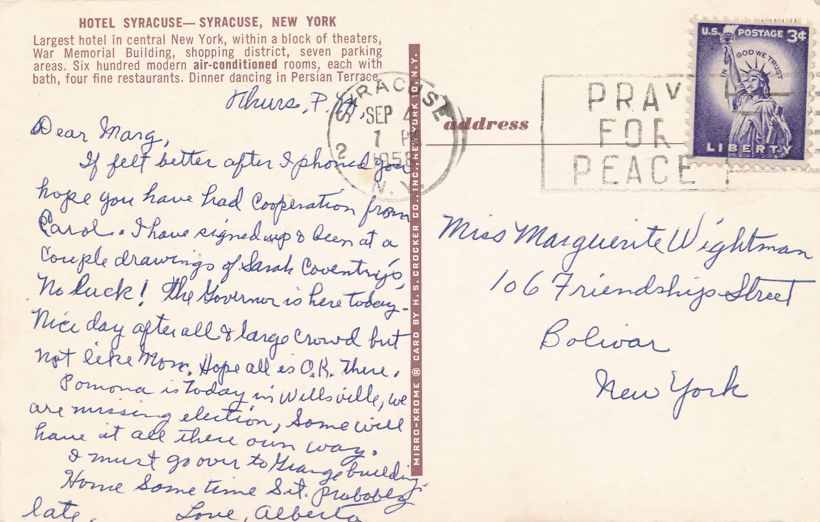 HOTEL SYRACUSE— SYRACUSE, NEW YORK
Largest hotel in central New York, within a block of theaters,
War Memorial Building, shopping district, seven parking
areas. Six hundred modern air-conditioned rooms, each with
bath, four fine restaurants. Dinner dancing in Persian Terrace.
Thurs, P.M,
Dear Marg,
If felt better after I phoned you
hope you have had Cooperation from
Carol. I have signed up & been at a
Couple drawings of Sarah Coventry's,
No luck! The Governor is here today-
Nice day after all & large Crowd but
not like Mon. Hope all is O.K. There.
Pomona is today in Wellsville, we
are missing election, Some will
have it all there own way.
I must go over to Grange building
Home Sometime Sat. Probably
late.
Love, Alberta
MIRRO-KROME ® CARD BY H. S. CROCKER CO., INC., NEW YORK 10, N. Y.
SYRACUSE
SEP 4
1 PM
1958
2
N.Y.
address
PRAY
FOR
PEACE
U.S. POSTAGE 3¢
IN GOD WE TRUST
LIBERTY
Miss Marguerite Wightman
106 Friendship Street
Bolivar
New York